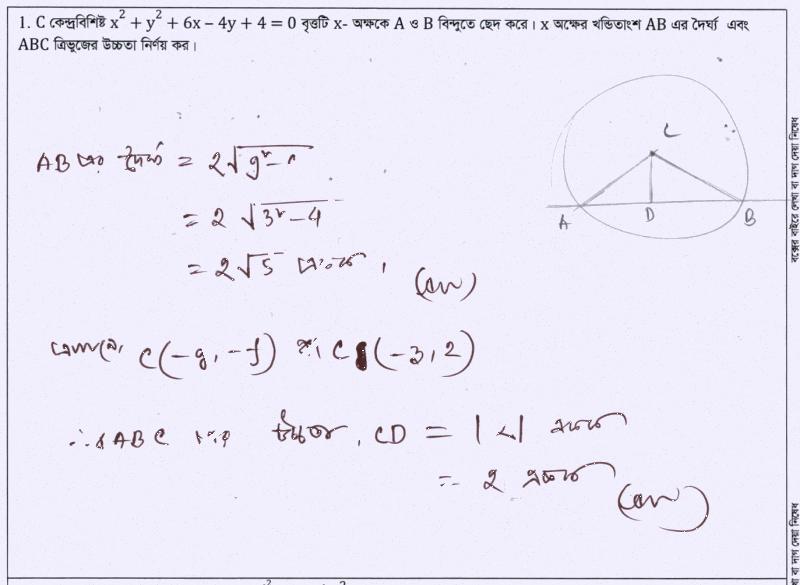 1. C কেন্দ্রবিশিষ্ট x² + y² + 6x – 4y + 4 = 0 বৃত্তটি x- অক্ষকে A ও B বিন্দুতে ছেদ করে। x অক্ষের খন্ডিতাংশ AB এর দৈর্ঘ্য এবং
ABC ত্রিভুজের উচ্চতা নির্ণয় কর।
C
A D B
AB এর দৈর্ঘ্য = 2√g² – c
= 2 √3² – 4
= 2√5 একক। (Ans)
এখানে, C(–g, –f) বা, C (–3, 2)
∴ ΔABC এর উচ্চতা, CD = |2| একক
= 2 একক (Ans)
বক্সের বাইরে লেখা বা দাগ দেয়া নিষেধ
বা দাগ দেয়া নিষেধ